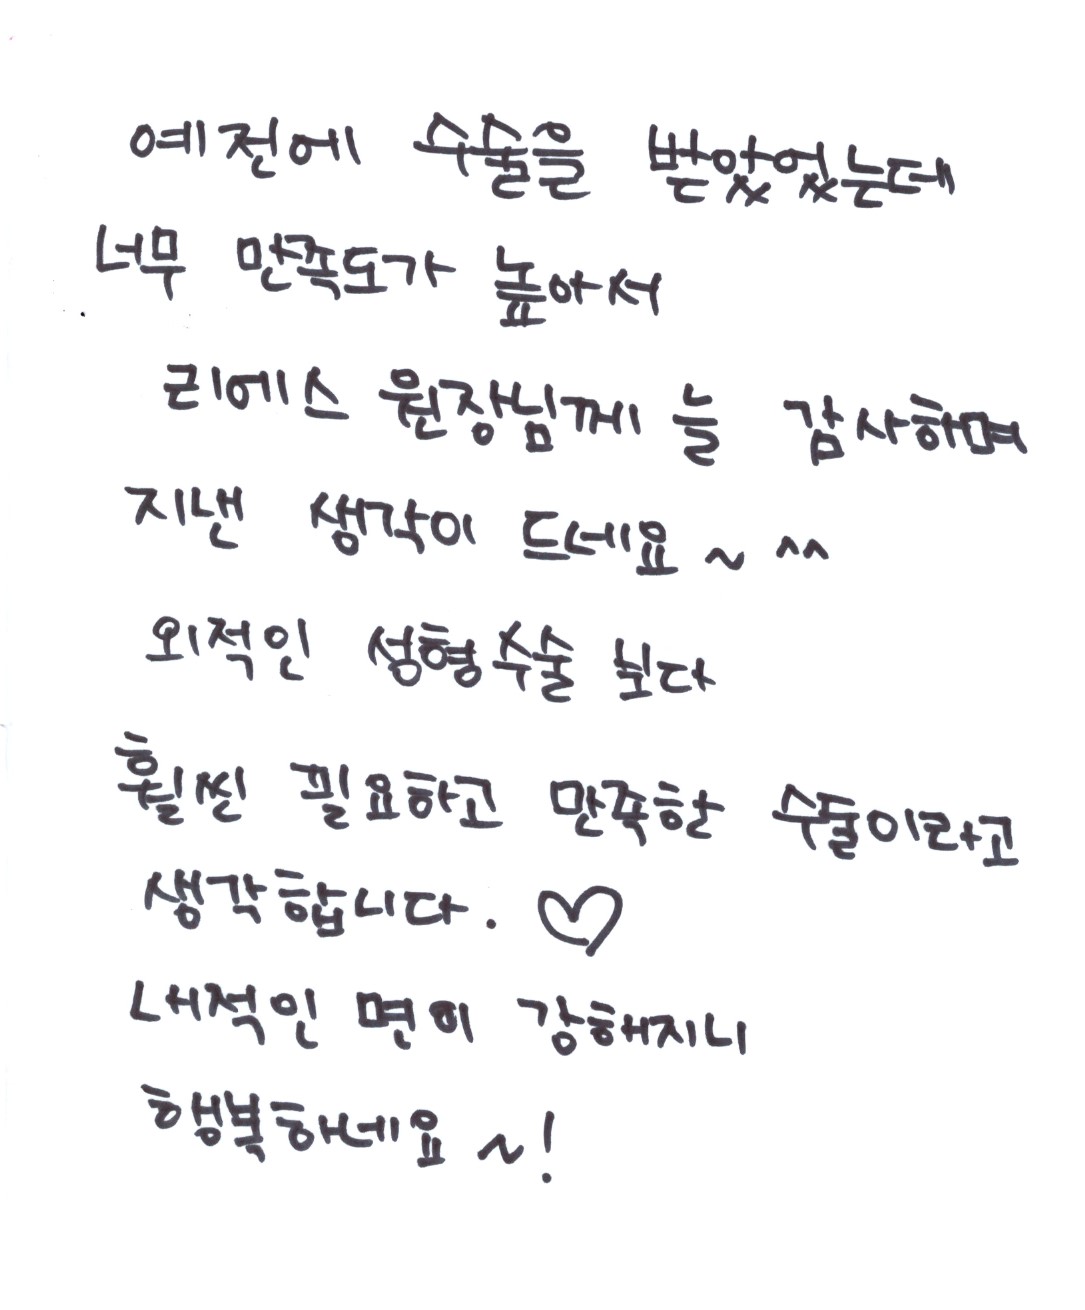 예전에 수술을 받았었는데
너무 만족도가 높아서
리에스 원장님께 늘 감사하며
지낸 생각이 드네요 ~ ^^
외적인 성형수술 보다
훨씬 필요하고 만족한 수술이라고
생각합니다. ♡
내적인 면이 강해지니
행복하네요 ~!